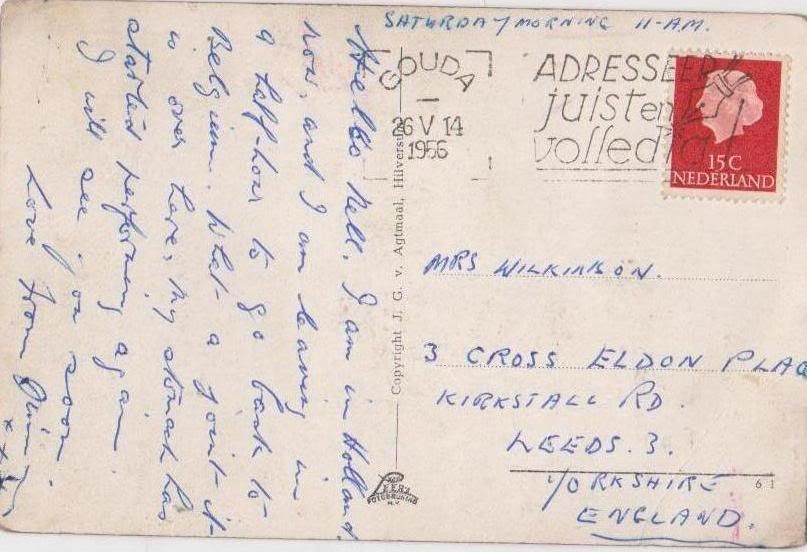 SATURDAY MORNING 11-A.M.
Hello Nell, I am in Holland
now, and I am leaving in
a half-hour to go back to
Belgium. What a joint it
is over here, my stomach has
started performing again
I will see you soon
Love from
x x x
GOUDA
26 V 14
1956
ADRESSEER
juist en
volledig
15 C
NEDERLAND
Copyright J. G. v. Agtmaal, Hilversum
MRS WILKINSON.
3 CROSS ELDON PLAC
KIRKSTALL RD.
LEEDS. 3.
YORKSHIRE
ENGLAND.
FOTODRUKKERIJ
N.V.
6 1